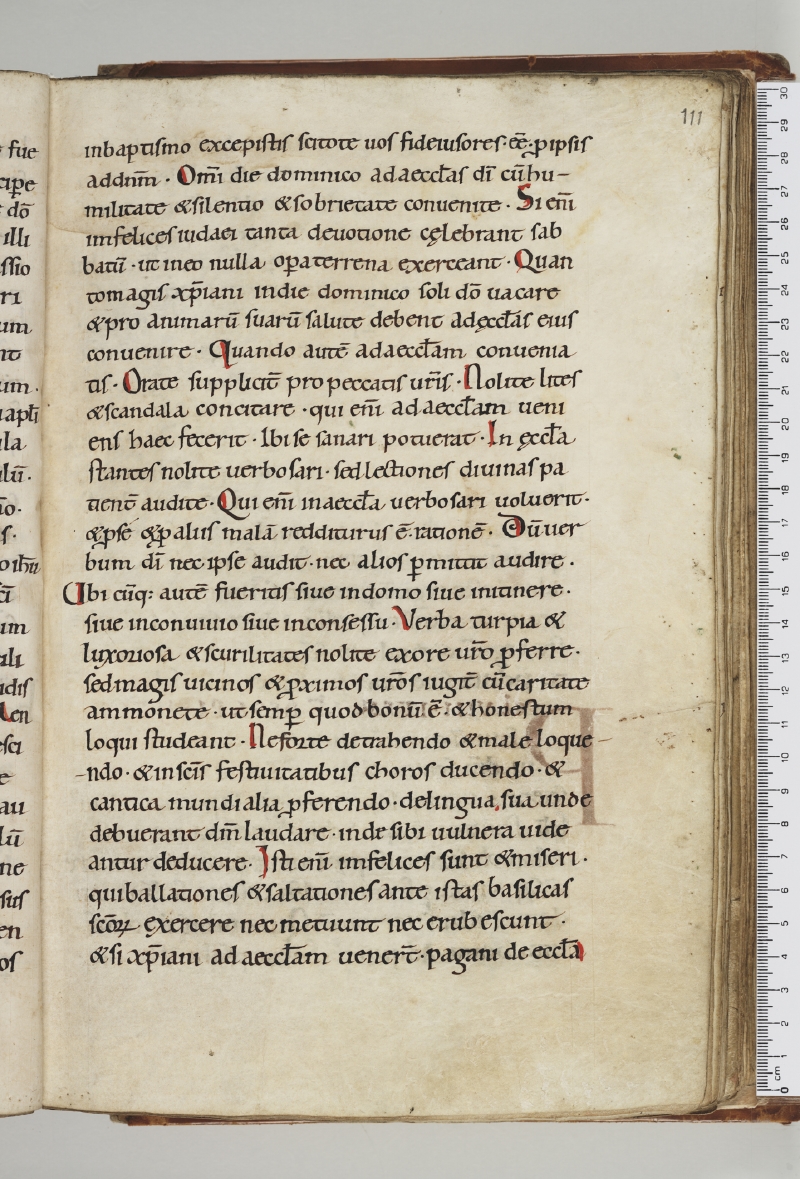 111
inbaptismo excepistis scitote uos fideiusores·eē·ꝓipsis
addnm̄ · Omī die dominico adaeccłas dī cūhu–
militate &silentio &sobrietate conuenite · Si enī
infelices iudaei tanta deuotione cęlebrant sab
batū · ut ineo nulla opa terrena exerceant · Quan
tomagis xp̄iani indie dominico soli dō uacare
&pro animarū suarū salute debent adęccłas eius
conuenire · Quando autē adaeccłam conuenia
tis · Orate supplicit̄ pro peccatis ur̄is · Nolite lites
&scandala concitare · qui enī adaeccłam ueni
ens haec fecerit · Ibi se sanari potuerat · In ęccła
stantes nolite uerbosari · sed lectiones diuinas pa
tient̄ audite · Qui enī inaeccła uerbosari uoluerit·
&ꝓse &ꝓaliis malā redditurus ē· rationē · Dū uer
bum dī nec ipse audit · nec alios ꝑmittit audire ·
Ubi cūq: autē fueritis siue indomo siue initinere ·
siue inconuiuio siue inconsessu · Verba turpia &
luxoriosa &scurilitates nolite exore ur̄o ꝓferre ·
sedmagis uicinos &ꝓximos ur̄os iugit̄ cūcaritate
ammonete · ut semꝑ quod bonū ē· &honestum
loqui studeant · Neforte detrahendo &male loque–
–ndo · &inscīs festiuitatibus choros ducendo · &
cantica mundialia ꝓferendo · delingua, sua unde
debuerant dm̄ laudare · inde sibi uulnera uide
antur deducere · Isti enī infelices sunt &miseri ·
qui ballationes &saltationes ante istas basilicas
scōꝝ exercere nec metuunt nec erubescunt ·
&si xp̄iani adaeccłam uener̄t · pagani de eccła
fue
dō
illi
ssio
ri
um
nt
um ·
la
lū ·
s ·
um
ali
udis
Len
e
au
lū
ne
sus
en
os
30
29
28
27
26
25
24
23
22
21
20
19
18
17
16
15
14
13
12
11
10
9
8
7
6
5
4
3
2
1
cm
0